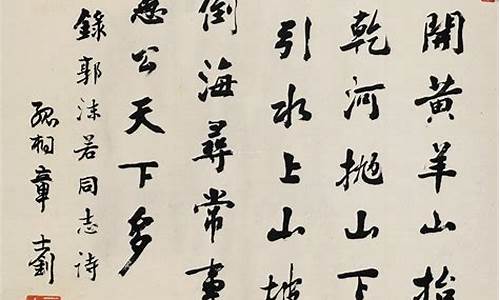 開黃羊山抬
乾河抛山下
引水上山坡
倒海尋常事
愚公天下多
錄郭沫若同志詩
孤桐章士釗